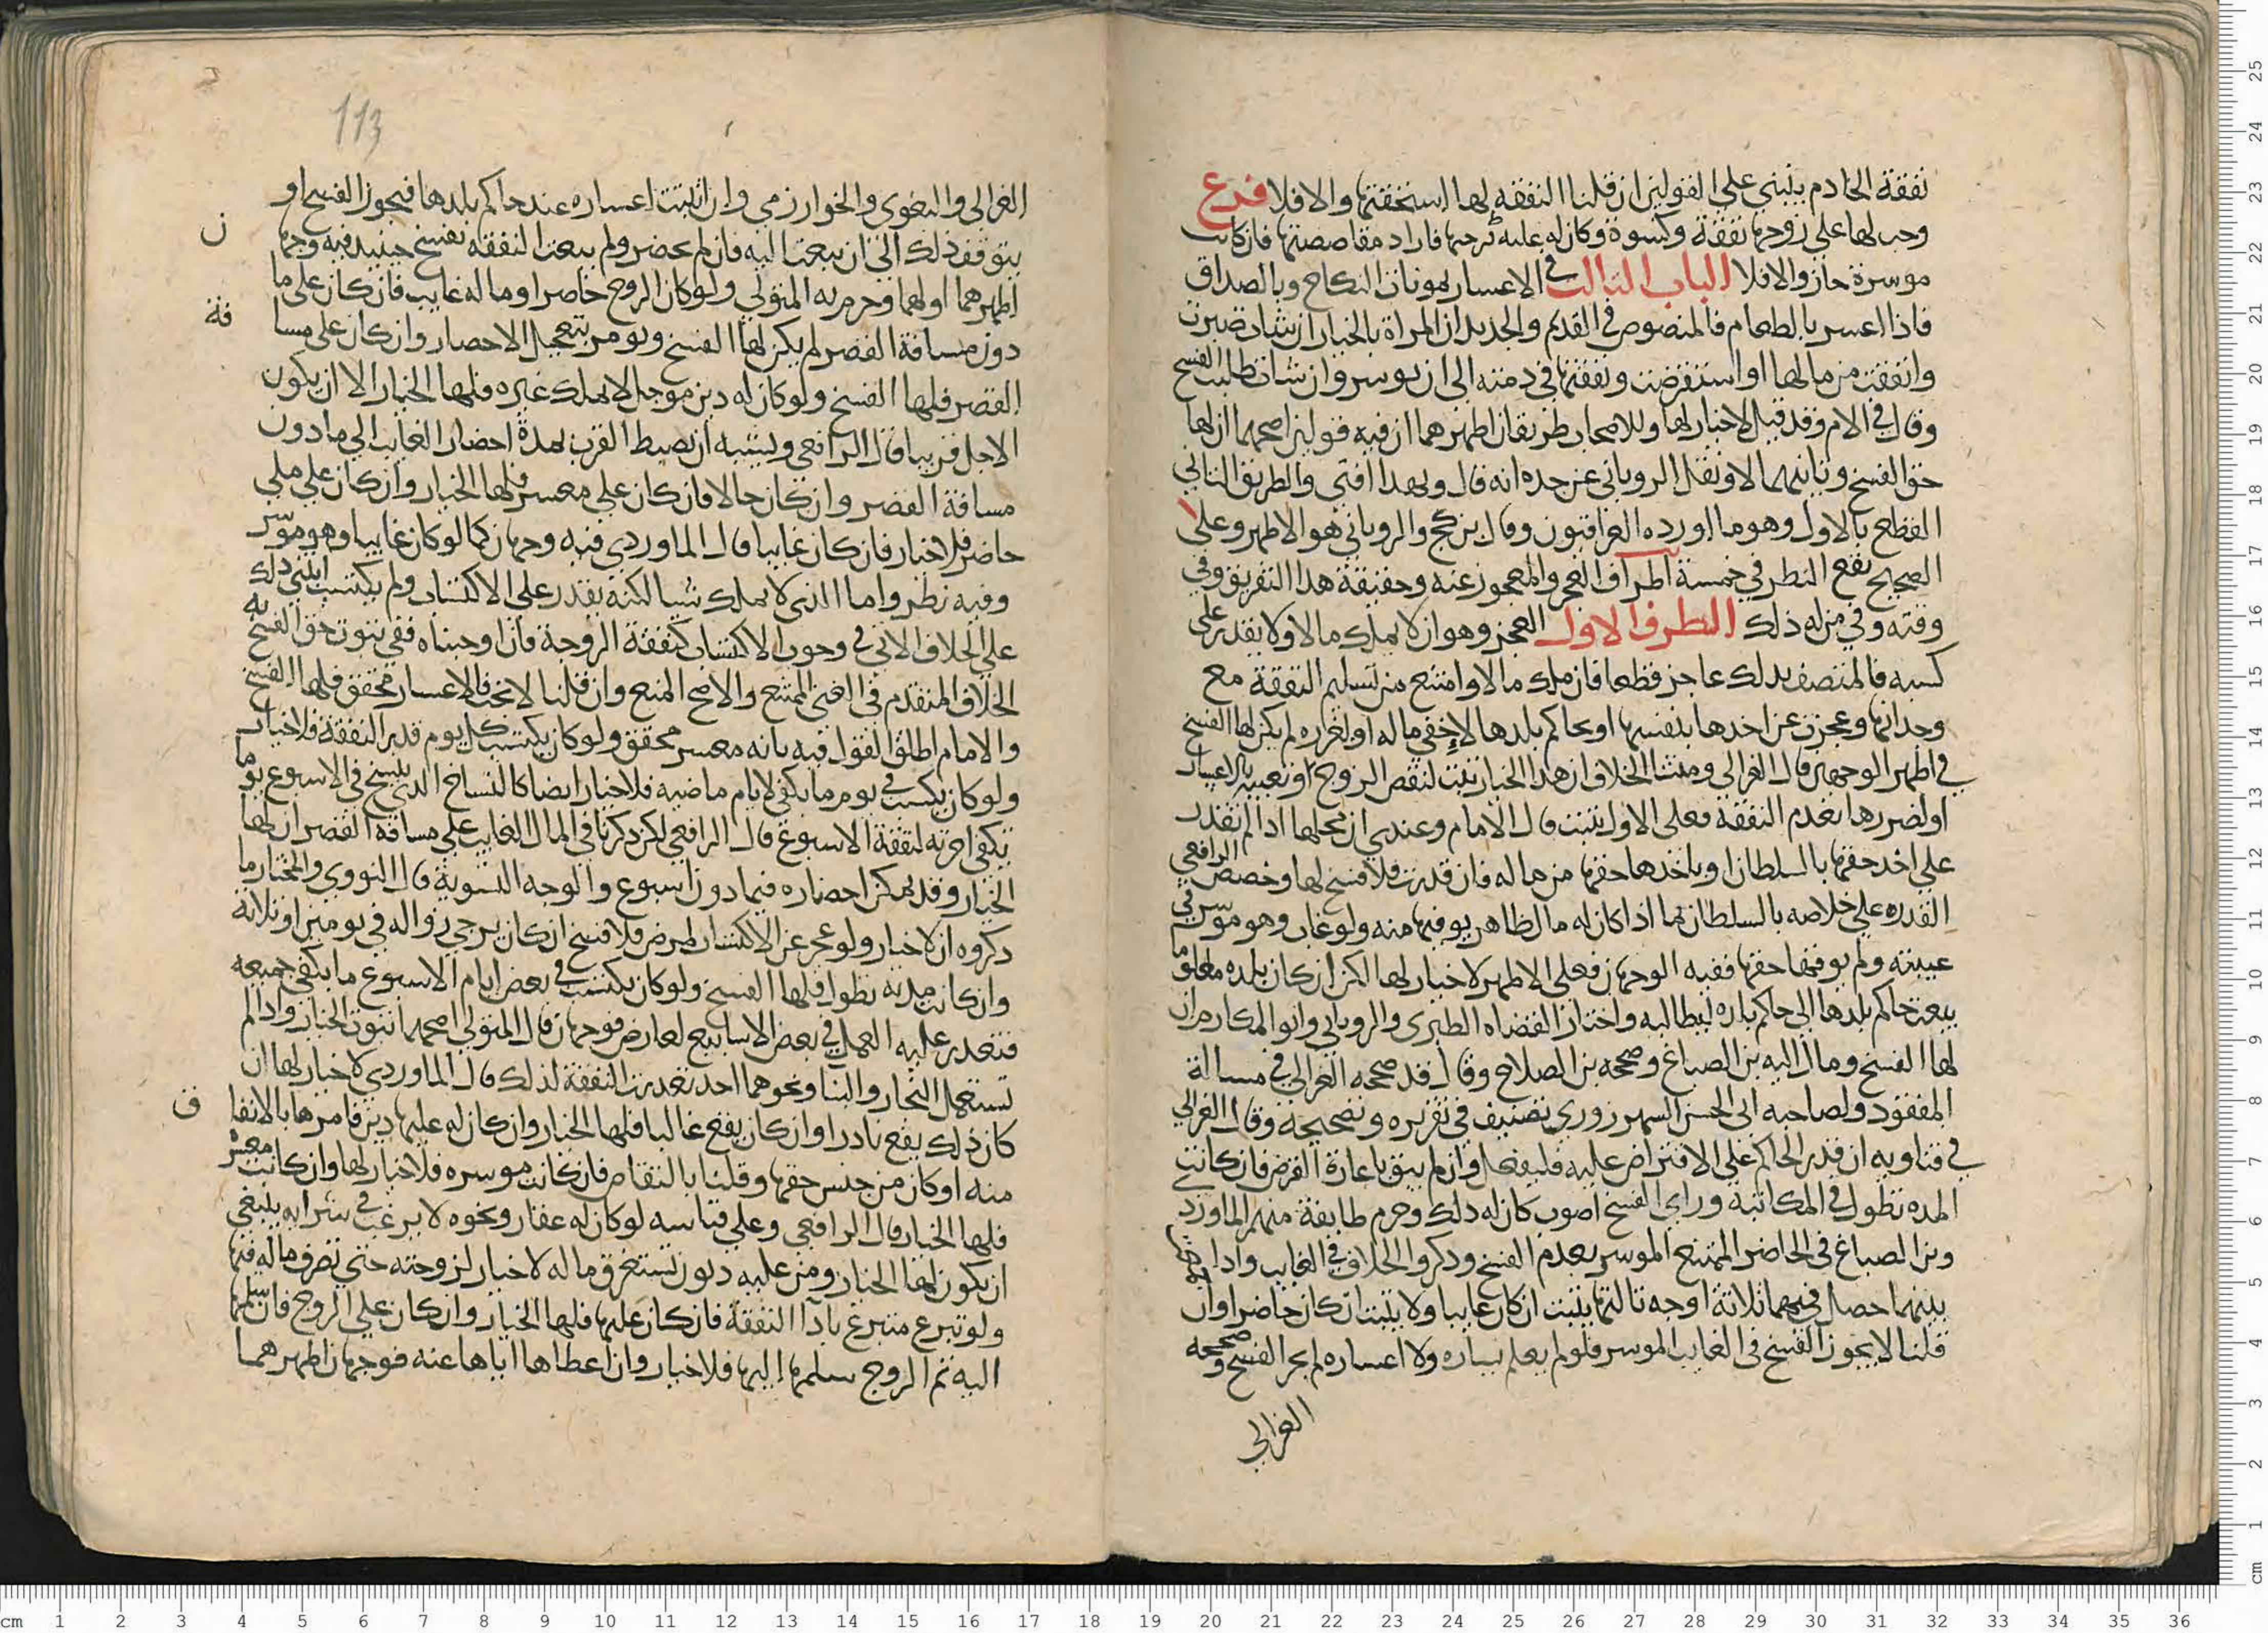 نفقة الخادم ينبني على القولين ان قلنا النفقه لها استحقتها والا فلا فرع
وجب لها على زوجها نفقة وكسوة وكان له عليه دين فاراد مقاصصتها فان كانت
موسرة جاز والا فلا الباب الثالث في الاعسار بمونات النكاح وبالصداق
فاذا اعسر بالطعام فالمنصوص في القديم والجديد ان المراة بالخيار ان شات صبرت
وانفقت من مالها او استقرضت ونفقتها في ذمته الى ان يوسر وان شات طلبت الفسخ
وقال في الام وقد قيل لا خيار لها وللاصحاب طريقان اظهرهما ان فيه قولين اصحهما ان لها
حق الفسخ وثانيهما لا ونقل الروياني عن جده انه قال وبهذا افتى والطريق الثاني
القطع بالاول وهو ما اورده العراقيون وقال بن كج والروياني هو الاظهر وعلى
الصحيح يقع النظر في خمسة اطراف العجز والمعجوز عنه وحقيقة هذا التفريق وفي
وقته وفي من له ذلك الطرف الاول العجز وهو ان لا يملك مالا ولا يقدر على
كسبه فالمتصف بذلك عاجز قطعا فان ملك مالا وامتنع من تسليم النفقة مع
وجدانها وعجزت عن اخذها بنفسها او بحاكم بلدها لاخفي ماله او لغرره لم يكن لها الفسخ
في اظهر الوجهين قال الغزالي ومنشا الخلاف ان هذا الخيار يثبت لنقص الزوج او تعييبه بالاعسار
او لضررها بعدم النفقة فعلى الاول يثبت قال الامام وعندي ان محلها اذا لم تقدر
على اخذ حقها بالسلطان او باخذها حقها من ماله فان قدرت فلا فسخ لها وخصص الرافعي
القدره على خلاصه بالسلطان بما اذا كان له مال ظاهر يوفيها منه ولو غاب وهو موسر في
غيبته ولم يوفها حقها ففيه الوجهان فعلى الاظهر لا خيار لها لكن ان كان بلده معلوما
يبعث حاكم بلدها الى حاكم بلده ليطالبه واختار القضاه الطبري والروياني وابو المكارم ان
لها الفسخ ومال اليه بن الصباغ وصححه بن الصلاح وقال قد صححه الغزالي في مسالة
المفقود ولصاحبه ابي الحسن السهرزوري تصنيف في تقريره وتصحيحه وقال الغزالي
في فتاويه ان قدر الحاكم على الاقتراض عليه فليفعل وان لم يثق باعادة القرض فان كانت
المده تطول في المكاتبة وراى الفسخ اصوب كان له ذلك وجزم طايفة منهم الماورد
وبن الصباغ في الحاضر الممتنع الموسر بعدم الفسخ وذكروا الخلاف في الغايب واذا
بينهما حصل فيهما ثلاثة اوجه ثالثها يثبت ان كان غايبا ولا يثبت ان كان حاضرا وان
قلنا لا يجوز الفسخ في الغايب الموسر فلو لم يعلم يساره ولا اعساره لم يجز الفسخ وصححه
الغزالي
113
الغزالي والبغوي والخوارزمي وان اثبتت اعساره عند حاكم بلدها فيجوز الفسخ او
يتوقف ذلك الى ان يبعث اليه فان لم يحضر ولم يبعث النفقه تفسخ حينيذ فيه وجها ن
اظهرهما اولهما وجزم به المتولي ولو كان الزوج حاضرا وماله غايب فان كان على ما
دون مسافة القصر لم يكن لها الفسخ ويومر بتعجيل الاحضار وان كان على مسا فة
القصر فلها الفسخ ولو كان له دين موجل لا يملك غيره فلها الخيار الا ان يكون
الاجل قريبا قال الرافعي ويشبه ان يضبط القرب بمدة احضار الغايب الى ما دون
مسافة القصر وان كان حالا فان كان على معسر فلها الخيار وان كان على ملي
حاضر فلا خيار فان كان غايبا قال الماوردي ففيه وجهان كما لو كان غايبا وهو موسر
وفيه نظر واما الذي لا يملك شيا لكنه يقدر على الاكتساب ولم يكتسب ابتني ذلك
على الخلاف الاتي في وجوب الاكتساب كنفقة الزوجة فان اوجبناه ففي ثبوت حق الفسخ به
الخلاف المتقدم في الغني الممتنع والاصح المنع وان قلنا لا يجب فالاعسار محقق فلها الفسخ
والامام اطلق القول فيه بانه معسر محقق ولو كان يكتسب كل يوم قدر النفقة فلا خيار
ولو كان يكسب في يوم ما يكفي لايام ماضيه فلا خيار ايضا كالنساخ الذي ينسخ في الاسبوع يوما
تكفي اجرته لنفقة الاسبوع قال الرافعي لكن ذكرنا في المال الغايب على مسافة القصر ان لها
الخيار وقد يمكن احضاره فيما دون اسبوع والوجه التسوية قال النووي والمختار ما
ذكروه ان لا خيار ولو عجز عن الاكتساب لمرض فلا فسخ ان كان يرجى زواله في يومين او ثلاثة
وان كانت مدته تطول فلها الفسخ ولو كان يكتسب في بعض ايام الاسبوع ما يكفي جميعه
فتعذر عليه العمل في بعض الاسابيع لعارض فوجهان قال المتولي اصحهما ثبوت الخيار واذا لم
تستعمل النجار والبنا ونحوهما احد تعذرت النفقة لذلك قال الماوردي لا خيار لها ان
كان ذلك يقع نادرا وان كان يقع غالبا فلها الخيار وان كان له عليها دين فامرها بالانفا ق
منه او كان من جنس حقها وقلنا بالتقاص فان كانت موسره فلا خيار لها وان كانت معسرة
فلها الخيار قال الرافعي وعلى قياسه لو كان له عقار ونحوه لا يرغب في شرايه ينبغي
ان يكون لها الخيار ومن عليه ديون تستغرق ماله لا خيار لزوجته حتى تصرف ماله فيها
ولو تبرع متبرع بادا النفقة فان كان عليها فلها الخيار وان كان على الزوج فان سلمها
اليه ثم الزوج سلمها اليها فلا خيار وان اعطاها اياها عنه فوجهان اظهرهما